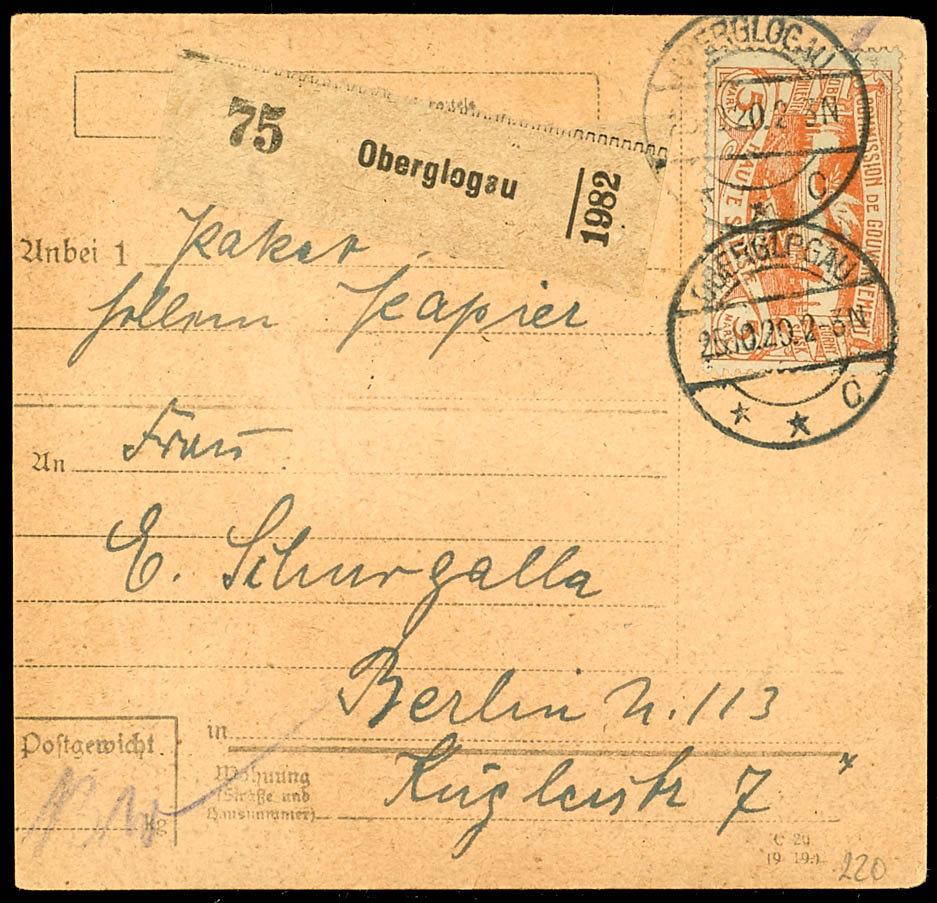 75
Oberglogau
1982
OBERGLOGAU
20.2-3N
C
COMMISSION DE GOUVERNEMENT
HAUTE S
5
MARK
5
MARK
OBERGLOGAU
26.10.20.2-3N
C
Anbei 1 Paket
Papier
An Frau
E. Schurgalla
in Berlin N. 113
Wohnung
(Straße und
Hausnummer)
Kuglerstr 7
Postgewicht
kg
C 20
220